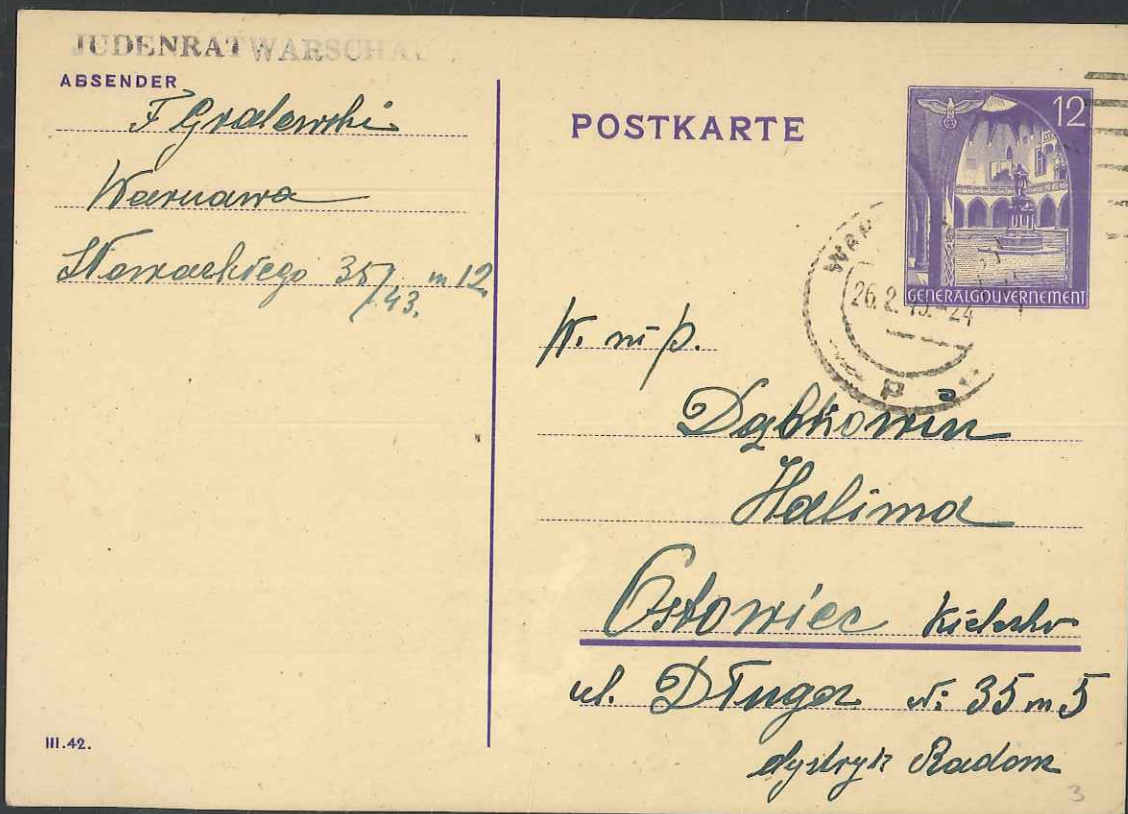 JUDENRAT WARSCHAU
ABSENDER
F Gralewski
Warszawa
Słowackiego 35/43. m 12
POSTKARTE
12
GENERALGOUVERNEMENT
26.2.43.-24
W. m p.
Dąbkowin
Halina
Ostowiec Kielecko
ul. Długa № 35 m 5
dystryk Radom
III.42.
3